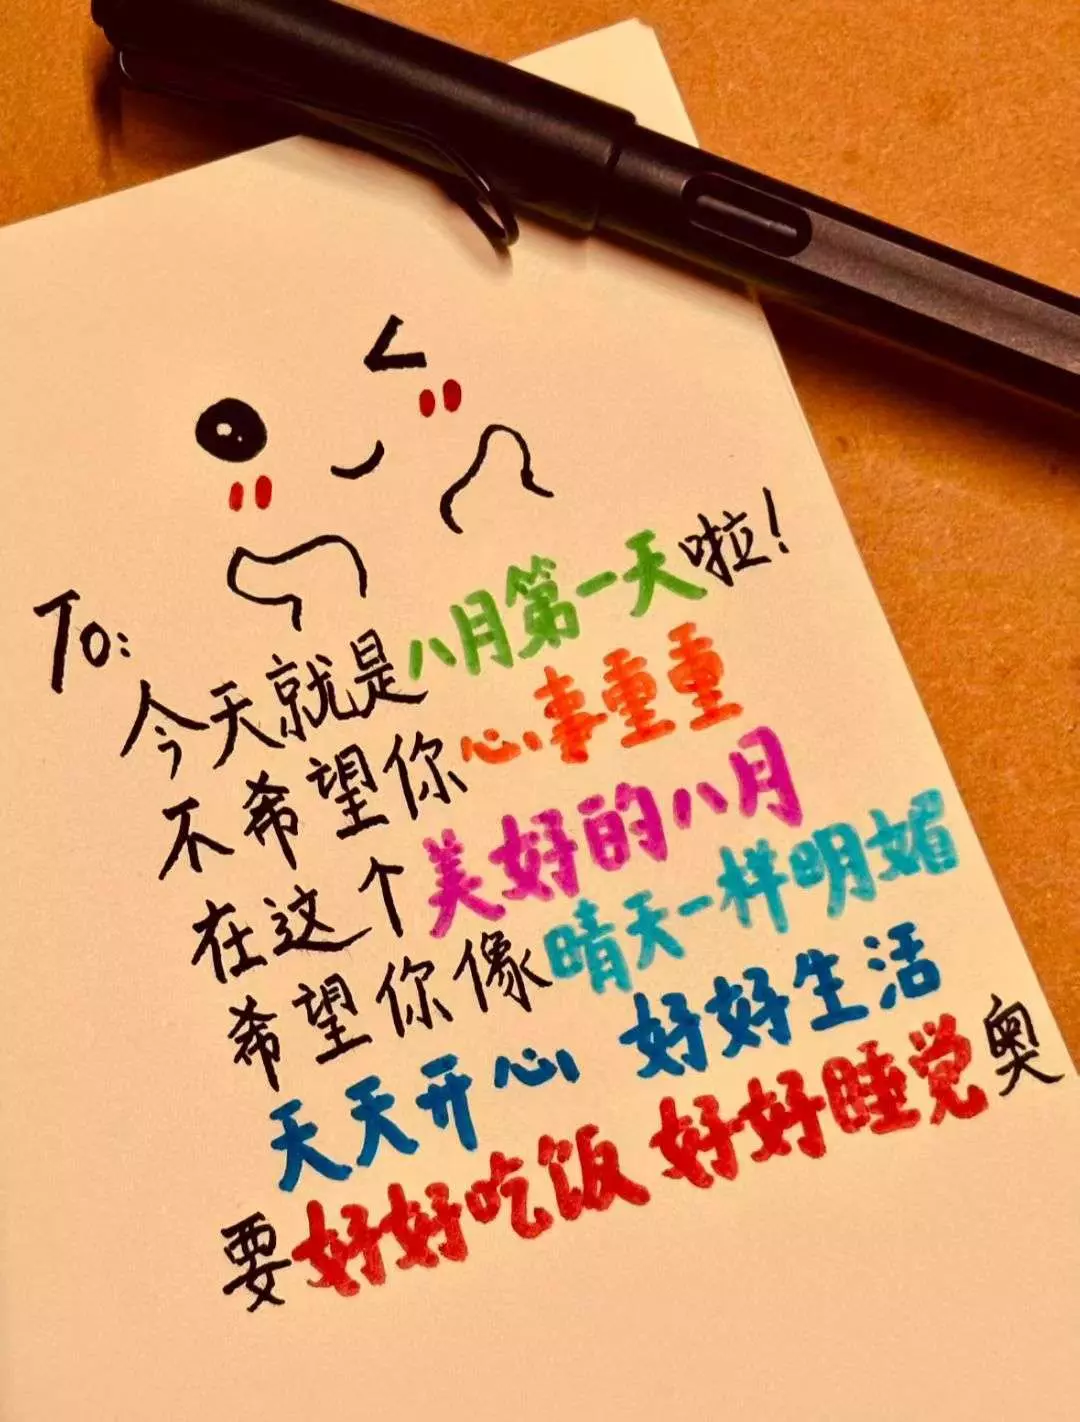 To:
今天就是八月第一天啦!
不希望你心事重重
在这个美好的八月
希望你像晴天一样明媚
天天开心 好好生活
要好好吃饭 好好睡觉奥